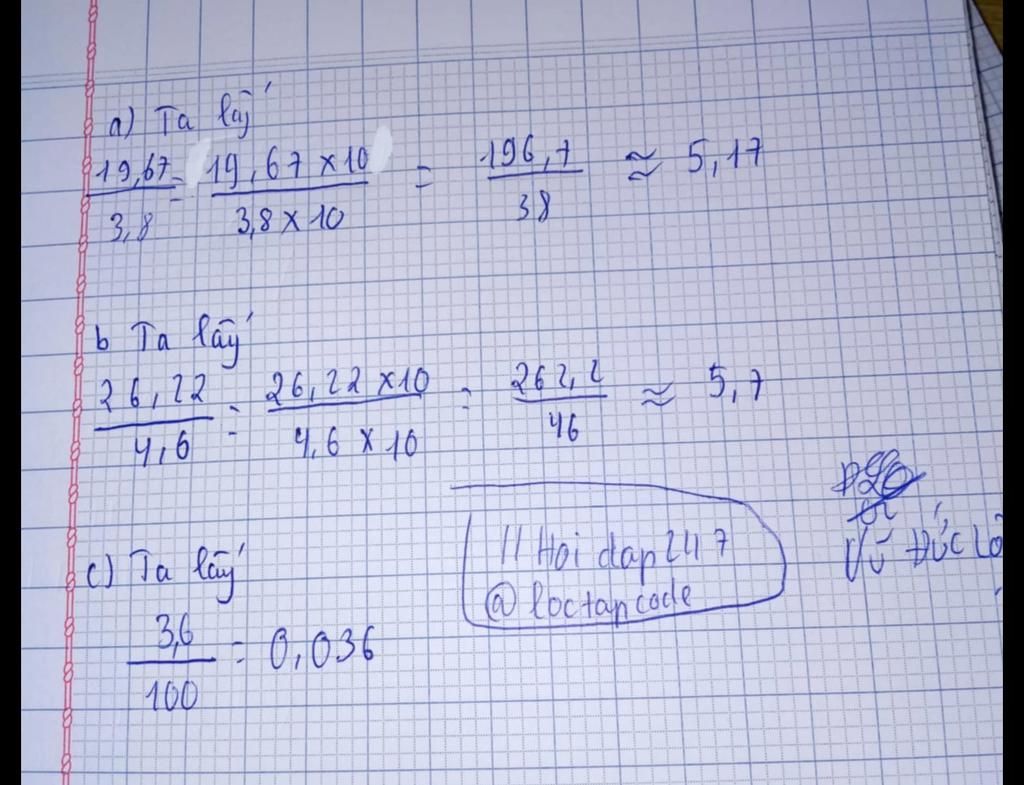 a) Ta lấy
19,67 / 3,8 = 19,67 × 10 / 3,8 × 10 = 196,7 / 38 ≈ 5,17
b Ta lấy
26,22 / 4,6 = 26,22 × 10 / 4,6 × 10 = 262,2 / 46 ≈ 5,7
c) Ta lấy
3,6 / 100 = 0,036
// Hoi dap 247
@ loctapcode
Vũ Đức Lộ